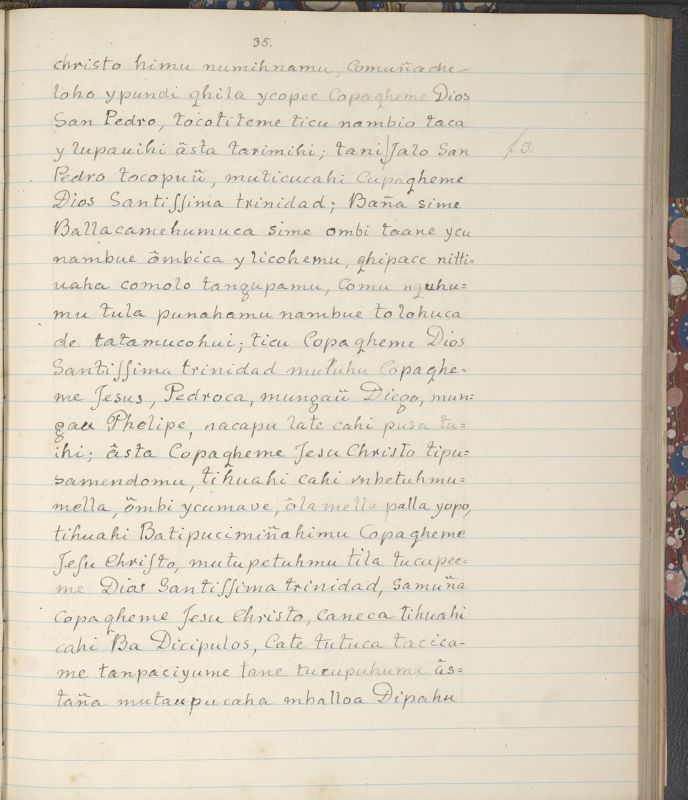 35.
christo himu numihnamu, Comuñache
loho ypundi qhila ycopec Copaqheme Dios
San Pedro, tocotiteme ticu nambio taca
y lupauihi âsta tarimihi; tani Jalo San
f 3.
Pedro tocopuũ, muticucahi Cupaqheme
Dios Santiſſima trinidad; Baña sime
Ballacamehumuca sime ombi taane ycu
nambue õmbica y licohemu, qhipace nitti=
uaha comolo tangupamu, Comu nguhu=
mu tula punahamu nambue tolohuca
de tatamucohui; ticu Copaqheme Dios
Santiſſima trinidad mutuhu Copaqhe=
me Jesus, Pedroca, mungaũ Diego, mun=
gau Phelipe, nacapu late cahi pusa tu=
ihi; âsta Copaqheme Jesu Christo tipu=
samendomu, tihuahi cahi vnbetuhmu=
mella, õmbi ycumave, ôla mella palla yopo,
tihuahi Batipucimiñahimu Copaqheme
Jeſu Chriſto, mutupetuhmu tila tucupee=
me Dios Santiſſima trinidad, Samuña
Copaqheme Jesu Christo, caneca tihuahi
cahi Ba Dicipulos, Cate tutuca tacica=
me tanpaciyume tane tucupuhume âs=
taña mutaupucaha mballoa Dipahu